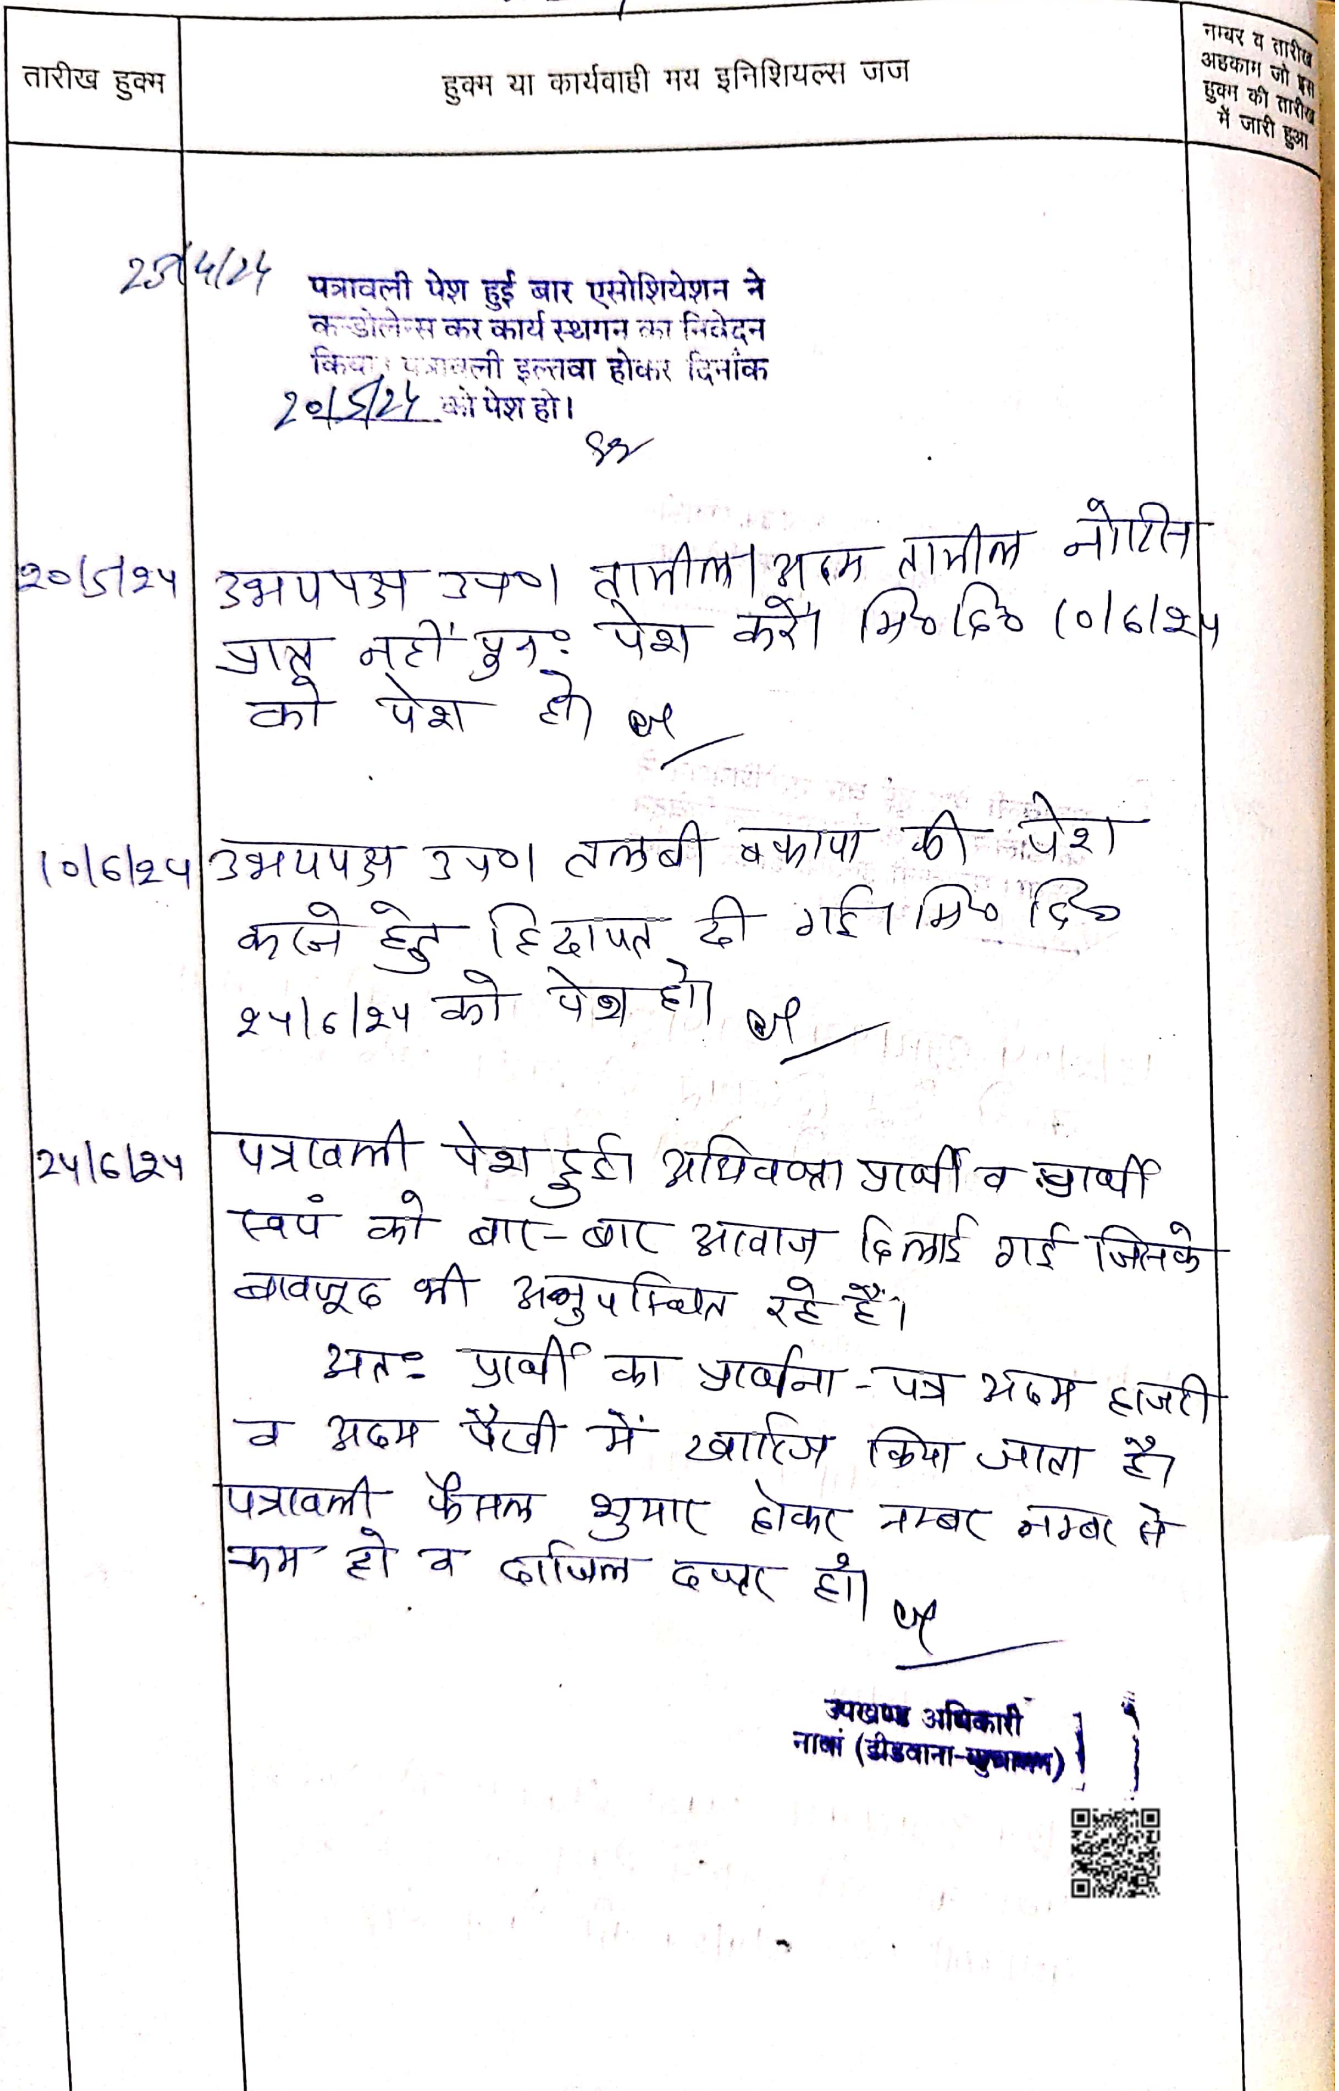 तारीख हुक्म
हुक्म या कार्यवाही मय इनिशियल्स जज
नम्बर व तारीख
अहकाम जो इस
हुक्म की तारीख
में जारी हुआ
25/4/24
पत्रावली पेश हुई बार एसोशियेशन ने
कन्डोलेन्स कर कार्य स्थगन का निवेदन
किया। पत्रावली इल्तवा होकर दिनांक
20/5/24 को पेश हो।
२०/5/२५ उभयपक्ष उप०। तामील/अदम तामील नोटिस
प्राप्त नहीं पुनः पेश करें। मि० दि० 10/6/२५
को पेश हो।
10/6/२५ उभयपक्ष उप०। तलबी बकाया की पेश
करने हेतु हिदायत दी गई। मि० दि०
२५/6/२५ को पेश हो।
२५/6/२५ पत्रावली पेश हुई। अधिवक्ता प्रार्थी व प्रार्थी
स्वयं को बार-बार आवाज दिलाई गई जिसके
बावजूद भी अनुपस्थित रहे हैं।
अतः प्रार्थी का प्रार्थना-पत्र अदम हाजरी
व अदम पैरवी में खारिज किया जाता है।
पत्रावली फैसल शुमार होकर नम्बर नम्बर से
कम हो व दाखिल दफ्तर हो।
उपखण्ड अधिकारी
नावां (डीडवाना-कुचामन)